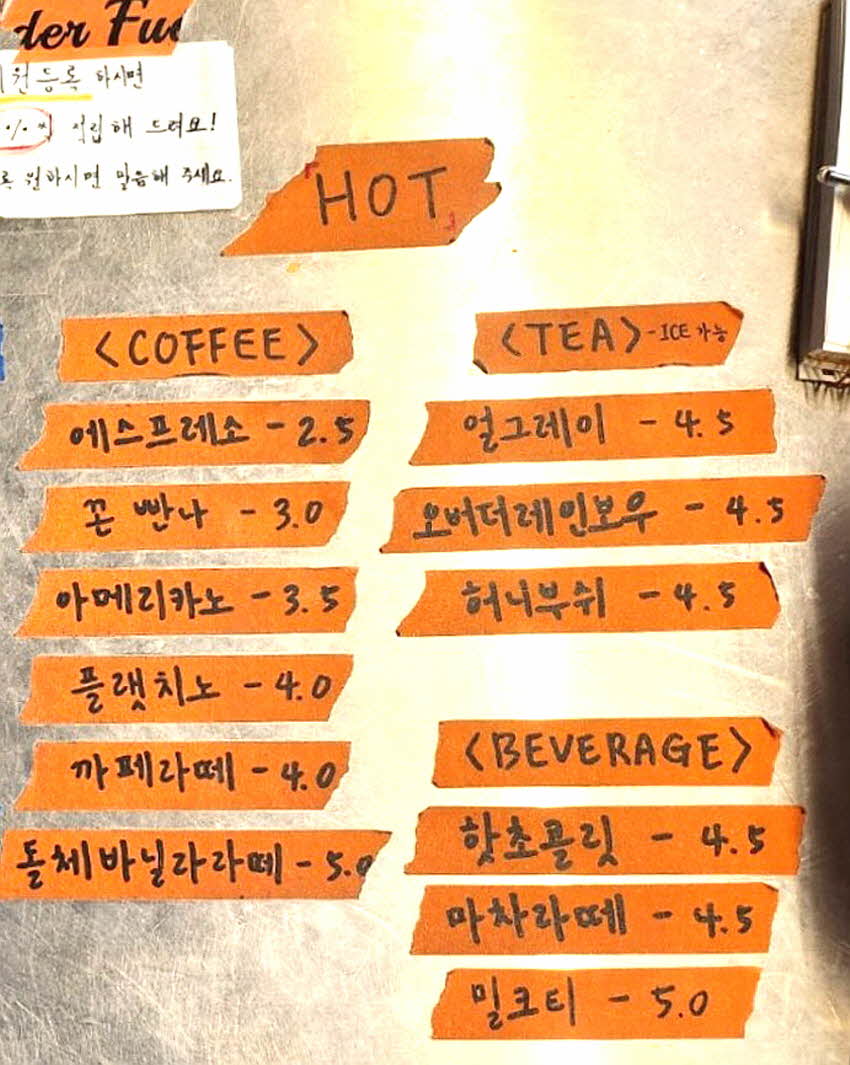 der Fue
원등록 하시면
적립해 드려요!
원하시면 말씀해 주세요.
HOT
<COFFEE>
에스프레소 - 2.5
꼰 빤나 - 3.0
아메리카노 - 3.5
플랫치노 - 4.0
까페라떼 - 4.0
돌체바닐라라떼 - 5.0
<TEA> - ICE 가능
얼그레이 - 4.5
오버더레인보우 - 4.5
허니부쉬 - 4.5
<BEVERAGE>
핫초콜릿 - 4.5
마차라떼 - 4.5
밀크티 - 5.0